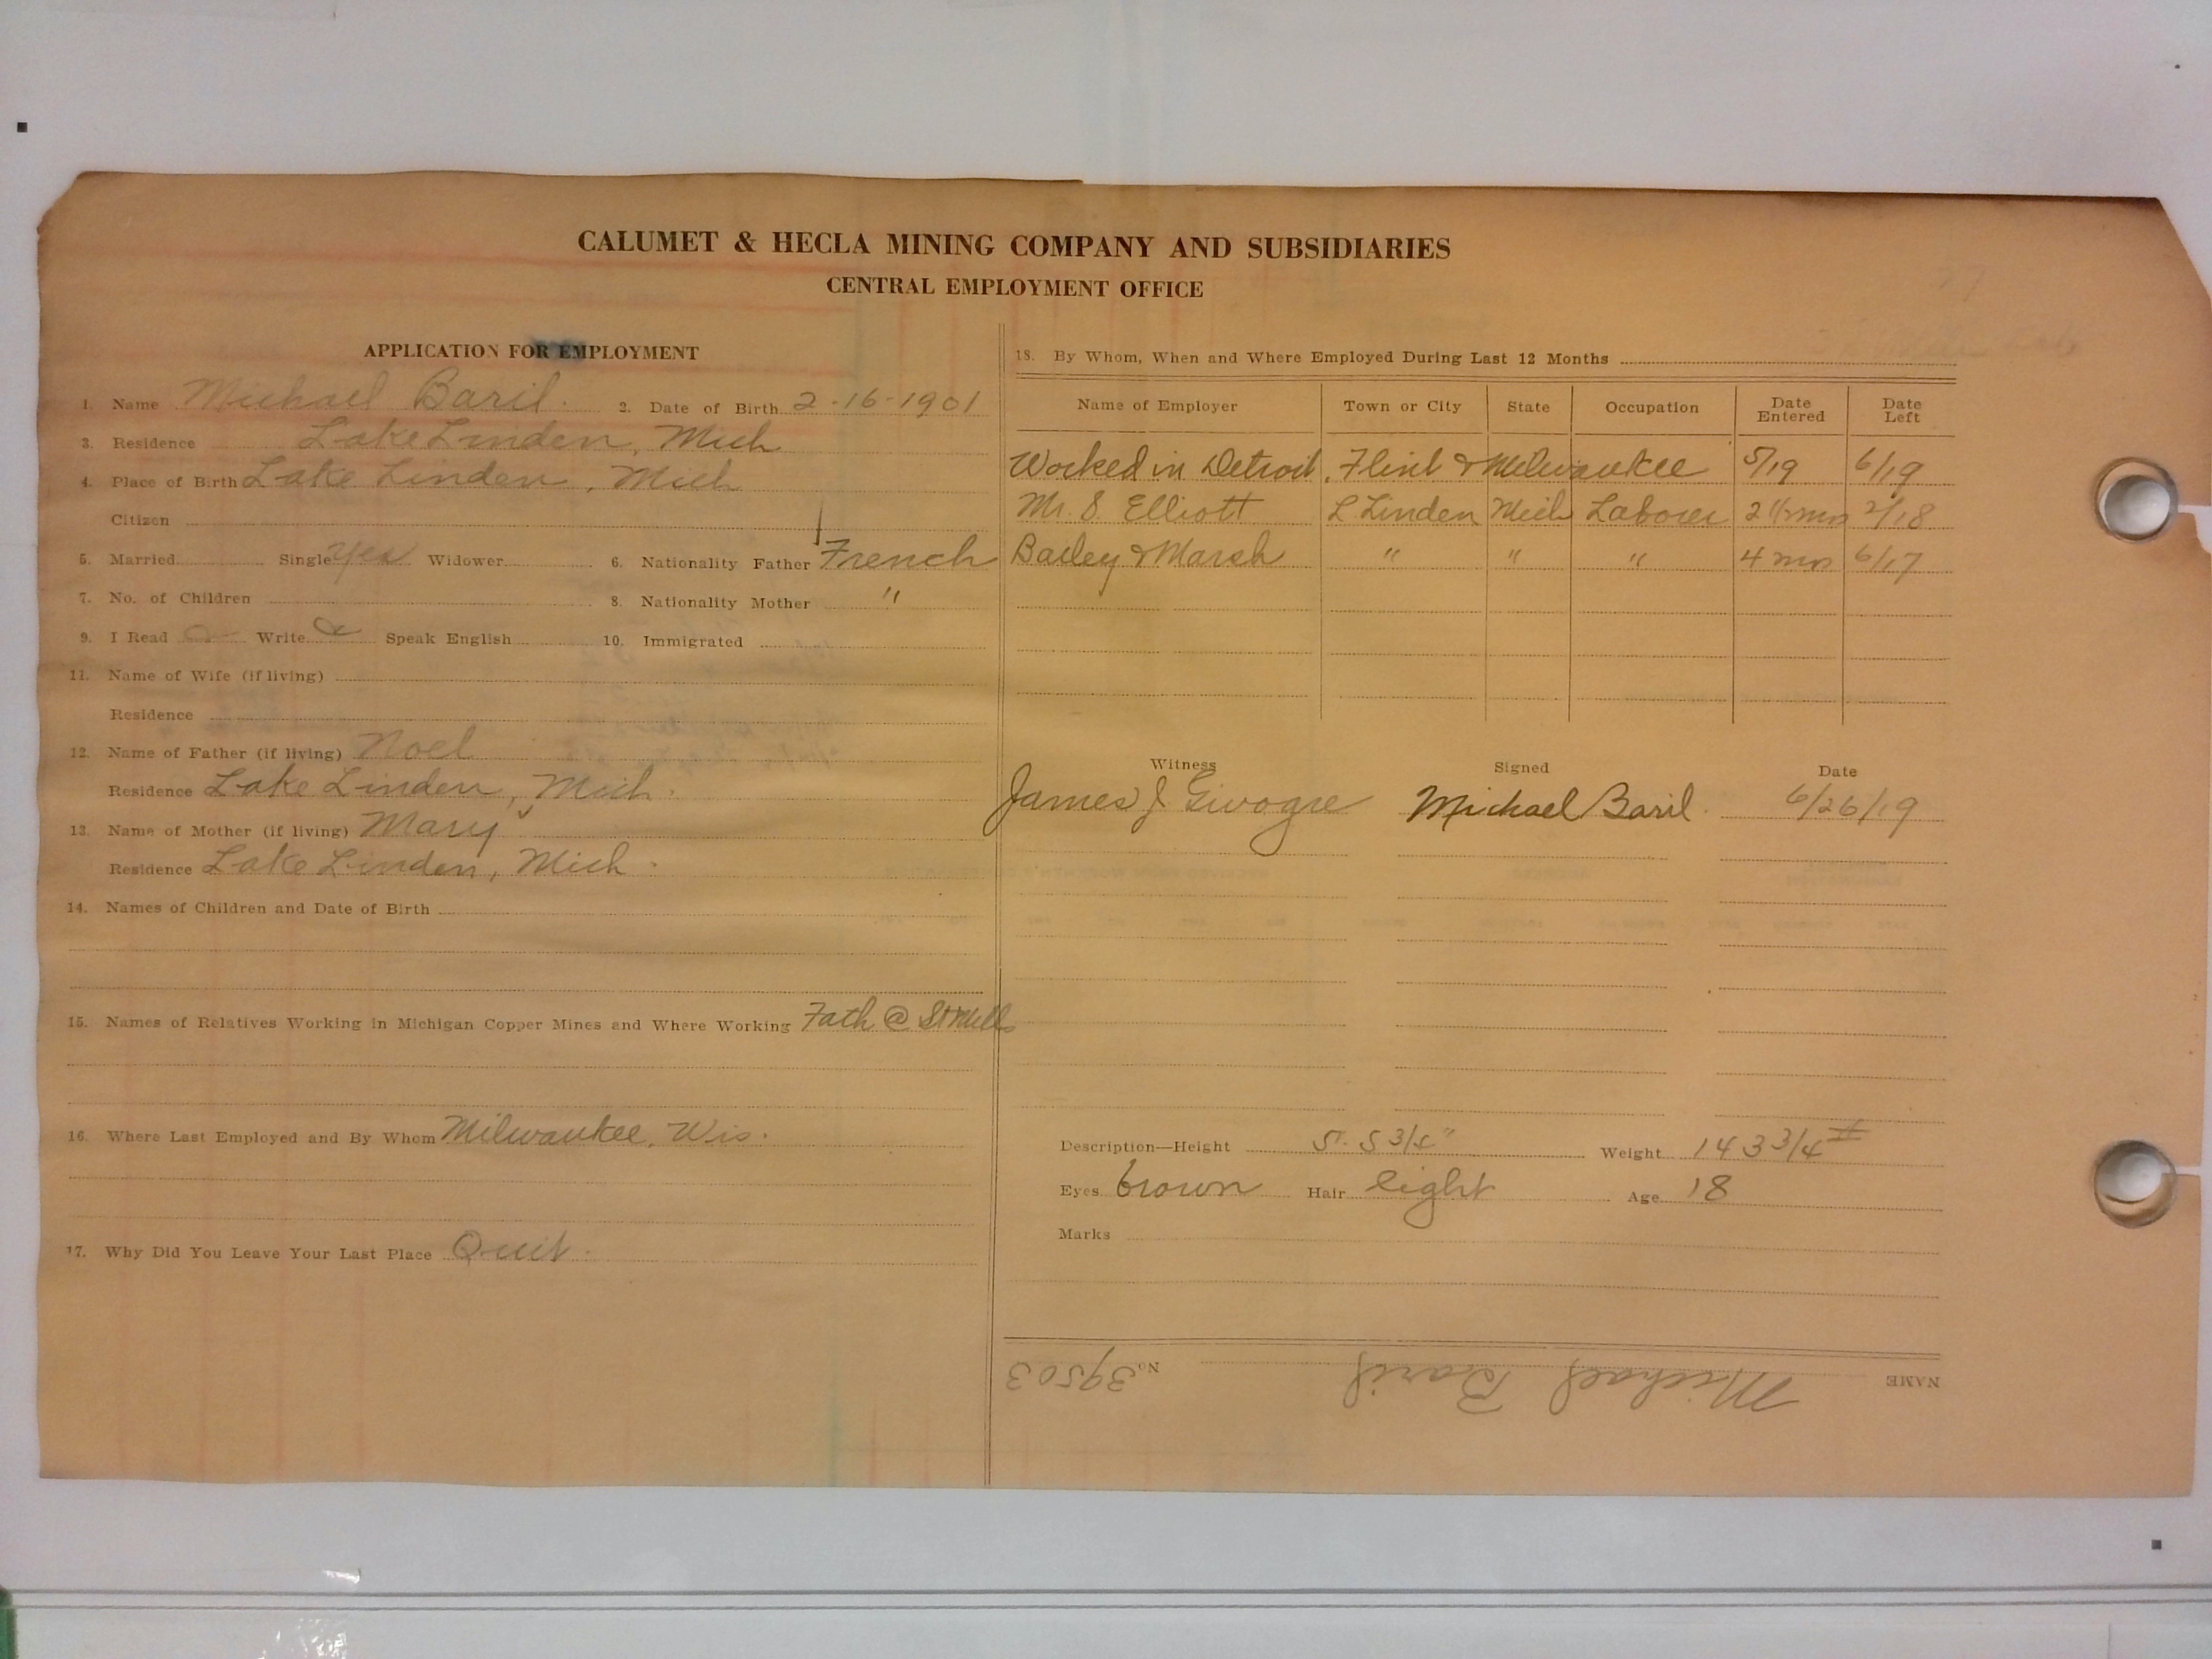 CALUMET & HECLA MINING COMPANY AND SUBSIDIARIES
CENTRAL EMPLOYMENT OFFICE
APPLICATION FOR EMPLOYMENT
1. Name Michael Baril. 2. Date of Birth 2-16-1901
3. Residence Lake Linden, Mich
4. Place of Birth Lake Linden, Mich
Citizen
5. Married Single yes Widower 6. Nationality Father French
7. No. of Children 8. Nationality Mother "
9. I Read Write Speak English 10. Immigrated
11. Name of Wife (if living)
Residence
12. Name of Father (if living) Noel
Residence Lake Linden, Mich.
13. Name of Mother (if living) Mary
Residence Lake Linden, Mich.
14. Names of Children and Date of Birth
15. Names of Relatives Working in Michigan Copper Mines and Where Working Fath @ St Mills
16. Where Last Employed and By Whom Milwaukee, Wis.
17. Why Did You Leave Your Last Place Quit.
18. By Whom, When and Where Employed During Last 12 Months
Name of Employer Town or City State Occupation Date Entered Date Left
Worked in Detroit, Flint & Milwaukee 5/19 6/19
Mr. S. Elliott L Linden Mich Laborer 2 1/2 mos 2/18
Bailey & Marsh " " " 4 mos 6/17
Witness Signed Date
James J Michael Baril. 6/26/19
Description—Height 5'. 5 3/4" Weight 143 3/4 #
Eyes brown Hair light Age 18
Marks
NAME Michael Baril No. 39503